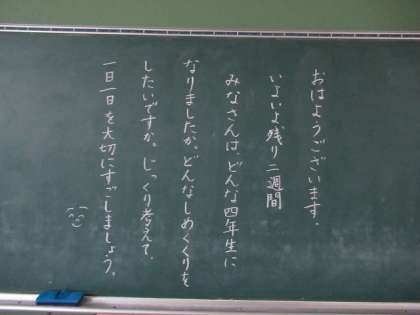 おはようございます。
いよいよ残り二週間
みなさんは どんな四年生に
なりましたか。どんなしめくくりを
したいですか。じっくり考えて、
一日一日を大切にすごしましょう。